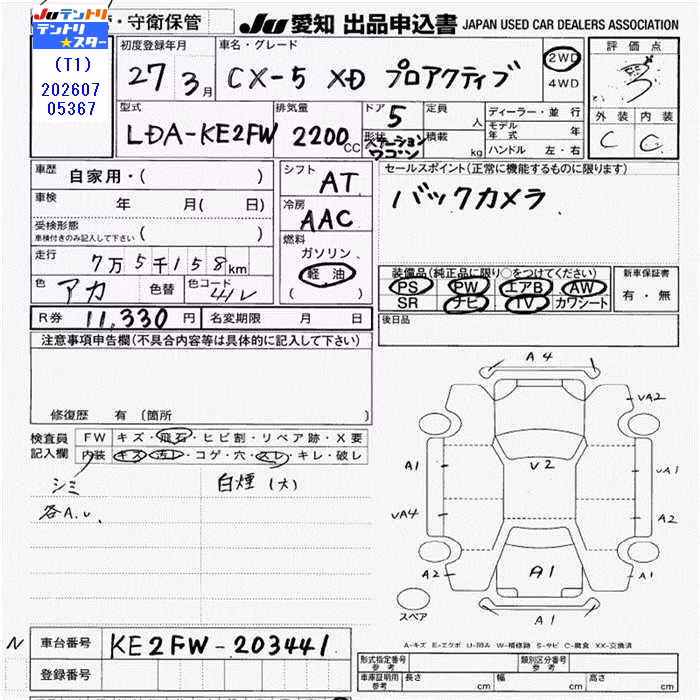 Juテントリ
テントリ★スター
(T1)
202607
05367
・守衛保管
Ju 愛知 出品申込書 JAPAN USED CAR DEALERS ASSOCIATION
初度登録年月 車名・グレード 評価点
27 3月 CX-5 XD プロアクティブ 2WD
4WD
外装 内装
C C
型式 排気量 ドア 定員 ディーラー・並行
LDA-KE2FW 2200cc 5 人 モデル年式 年
形状 ステーションワゴン 積載 kg ハンドル 左・右
車歴 自家用・( )
シフト AT
セールスポイント(正常に機能するものに限り)
バックカメラ
車検 年 月( 日)
冷房 AAC
受検形態
車検付きのみ記入して下さい ( )
燃料
ガソリン
軽油
( )
走行 7万5千158km
装備品(純正品に限り○をつけてください) 新車保証書
PS PW エアB AW 有・無
SR ナビ TV カワシート
色 アカ 色替 色コード 41V
R券 11,330円 名変期限 月 日
後日品
注意事項申告欄(不具合内容等は具体的に記入して下さい)
修復歴 有(箇所 )
検査員 FW キズ・飛石・ヒビ割・リペア跡・X要
記入欄 内装 キズ・汚レ・コゲ・穴・スレ・キレ・破レ
シミ 白煙(大)
各A.U.
A4
UA2
A1 V2 UA1
UA4 A2
A2 A1 A1
スペア A1
A-キズ E-エクボ U-凹み W-補修跡 S-サビ C-腐食 XX-交換済
N 車台番号 KE2FW-203441
登録番号
形式指定番号 参考 類別区分番号 参考
車庫証明用 参考 長さ cm 幅 cm 高さ cm